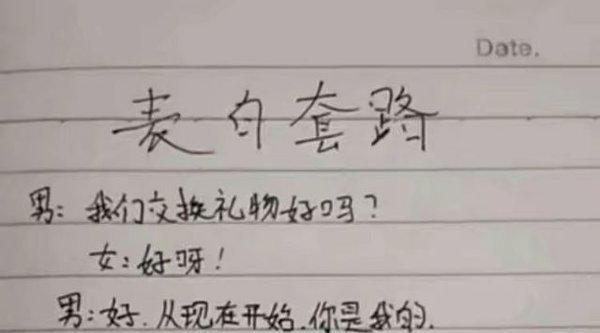 Date.
表白套路
男：我们交换礼物好吗？
女：好呀！
男：好．从现在开始．你是我的．